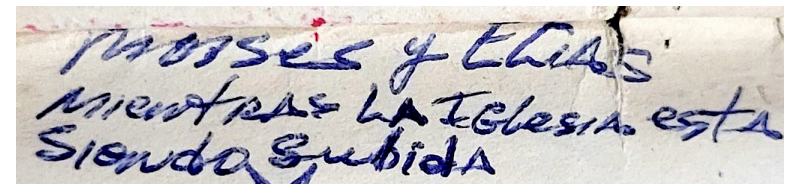 moises y Elias
mientRAS LA IGlesiA estA
Siendo Subida